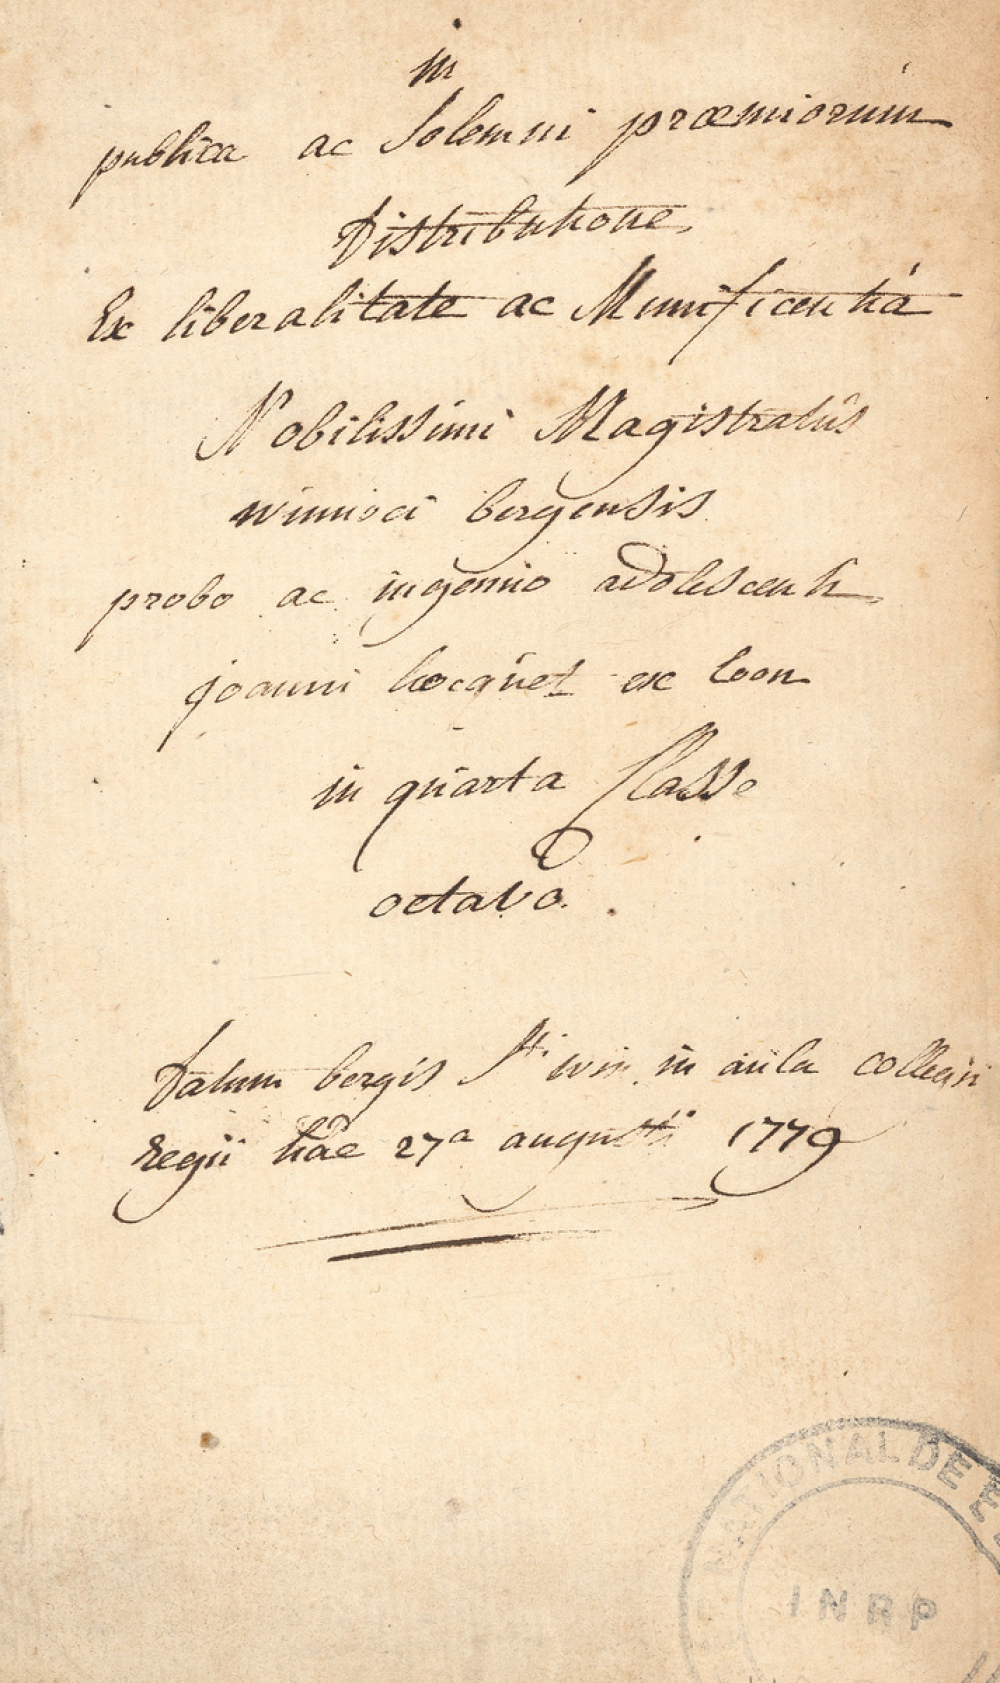 in
publica ac Solemni præmiorum
Distributione,
Ex liberalitate ac Munificentiâ
Nobilissimi Magistratûs
winnoci bergensis
probo ac ingenuo adolescenti
joanni hocquet ex loon
in quarta Classe
octavo.
Datum bergis Sti win. in aula collegii
regii hac 27a augusti 1779
NATIONAL DE
INRP